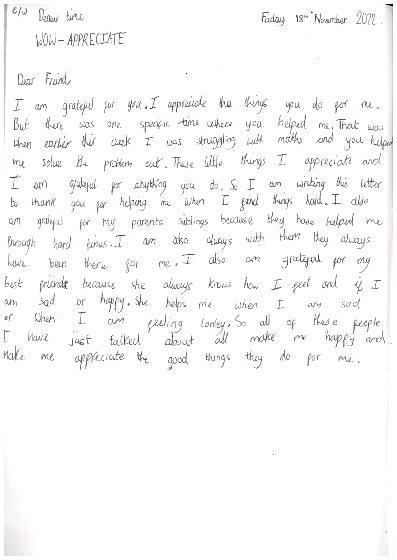 C/W Demu time Friday 18th November 2022.
WOW - APPRECIATE
Dear Fraind,
I am grateful for you. I appreciate the things you do for me.
But there was one specific time where you helped me. That was
when earlier this week I was struggling with maths and you helped
me solve the problem out. These little things I appreciate and
I am grateful for anything you do. So I am writing this letter
to thank you for helping me when I find things hard. I also
am grateful for my parents siblings because they have helped me
through hard times. I am also always with them they always
have been there for me. I also am grateful for my
best friend because she always knows how I feel and if I
am sad or happy. She helps me when I am sad
or when I am feeling loney. So all of these people
I have just talked about all make me happy and
make me appreciate the good things they do for me.